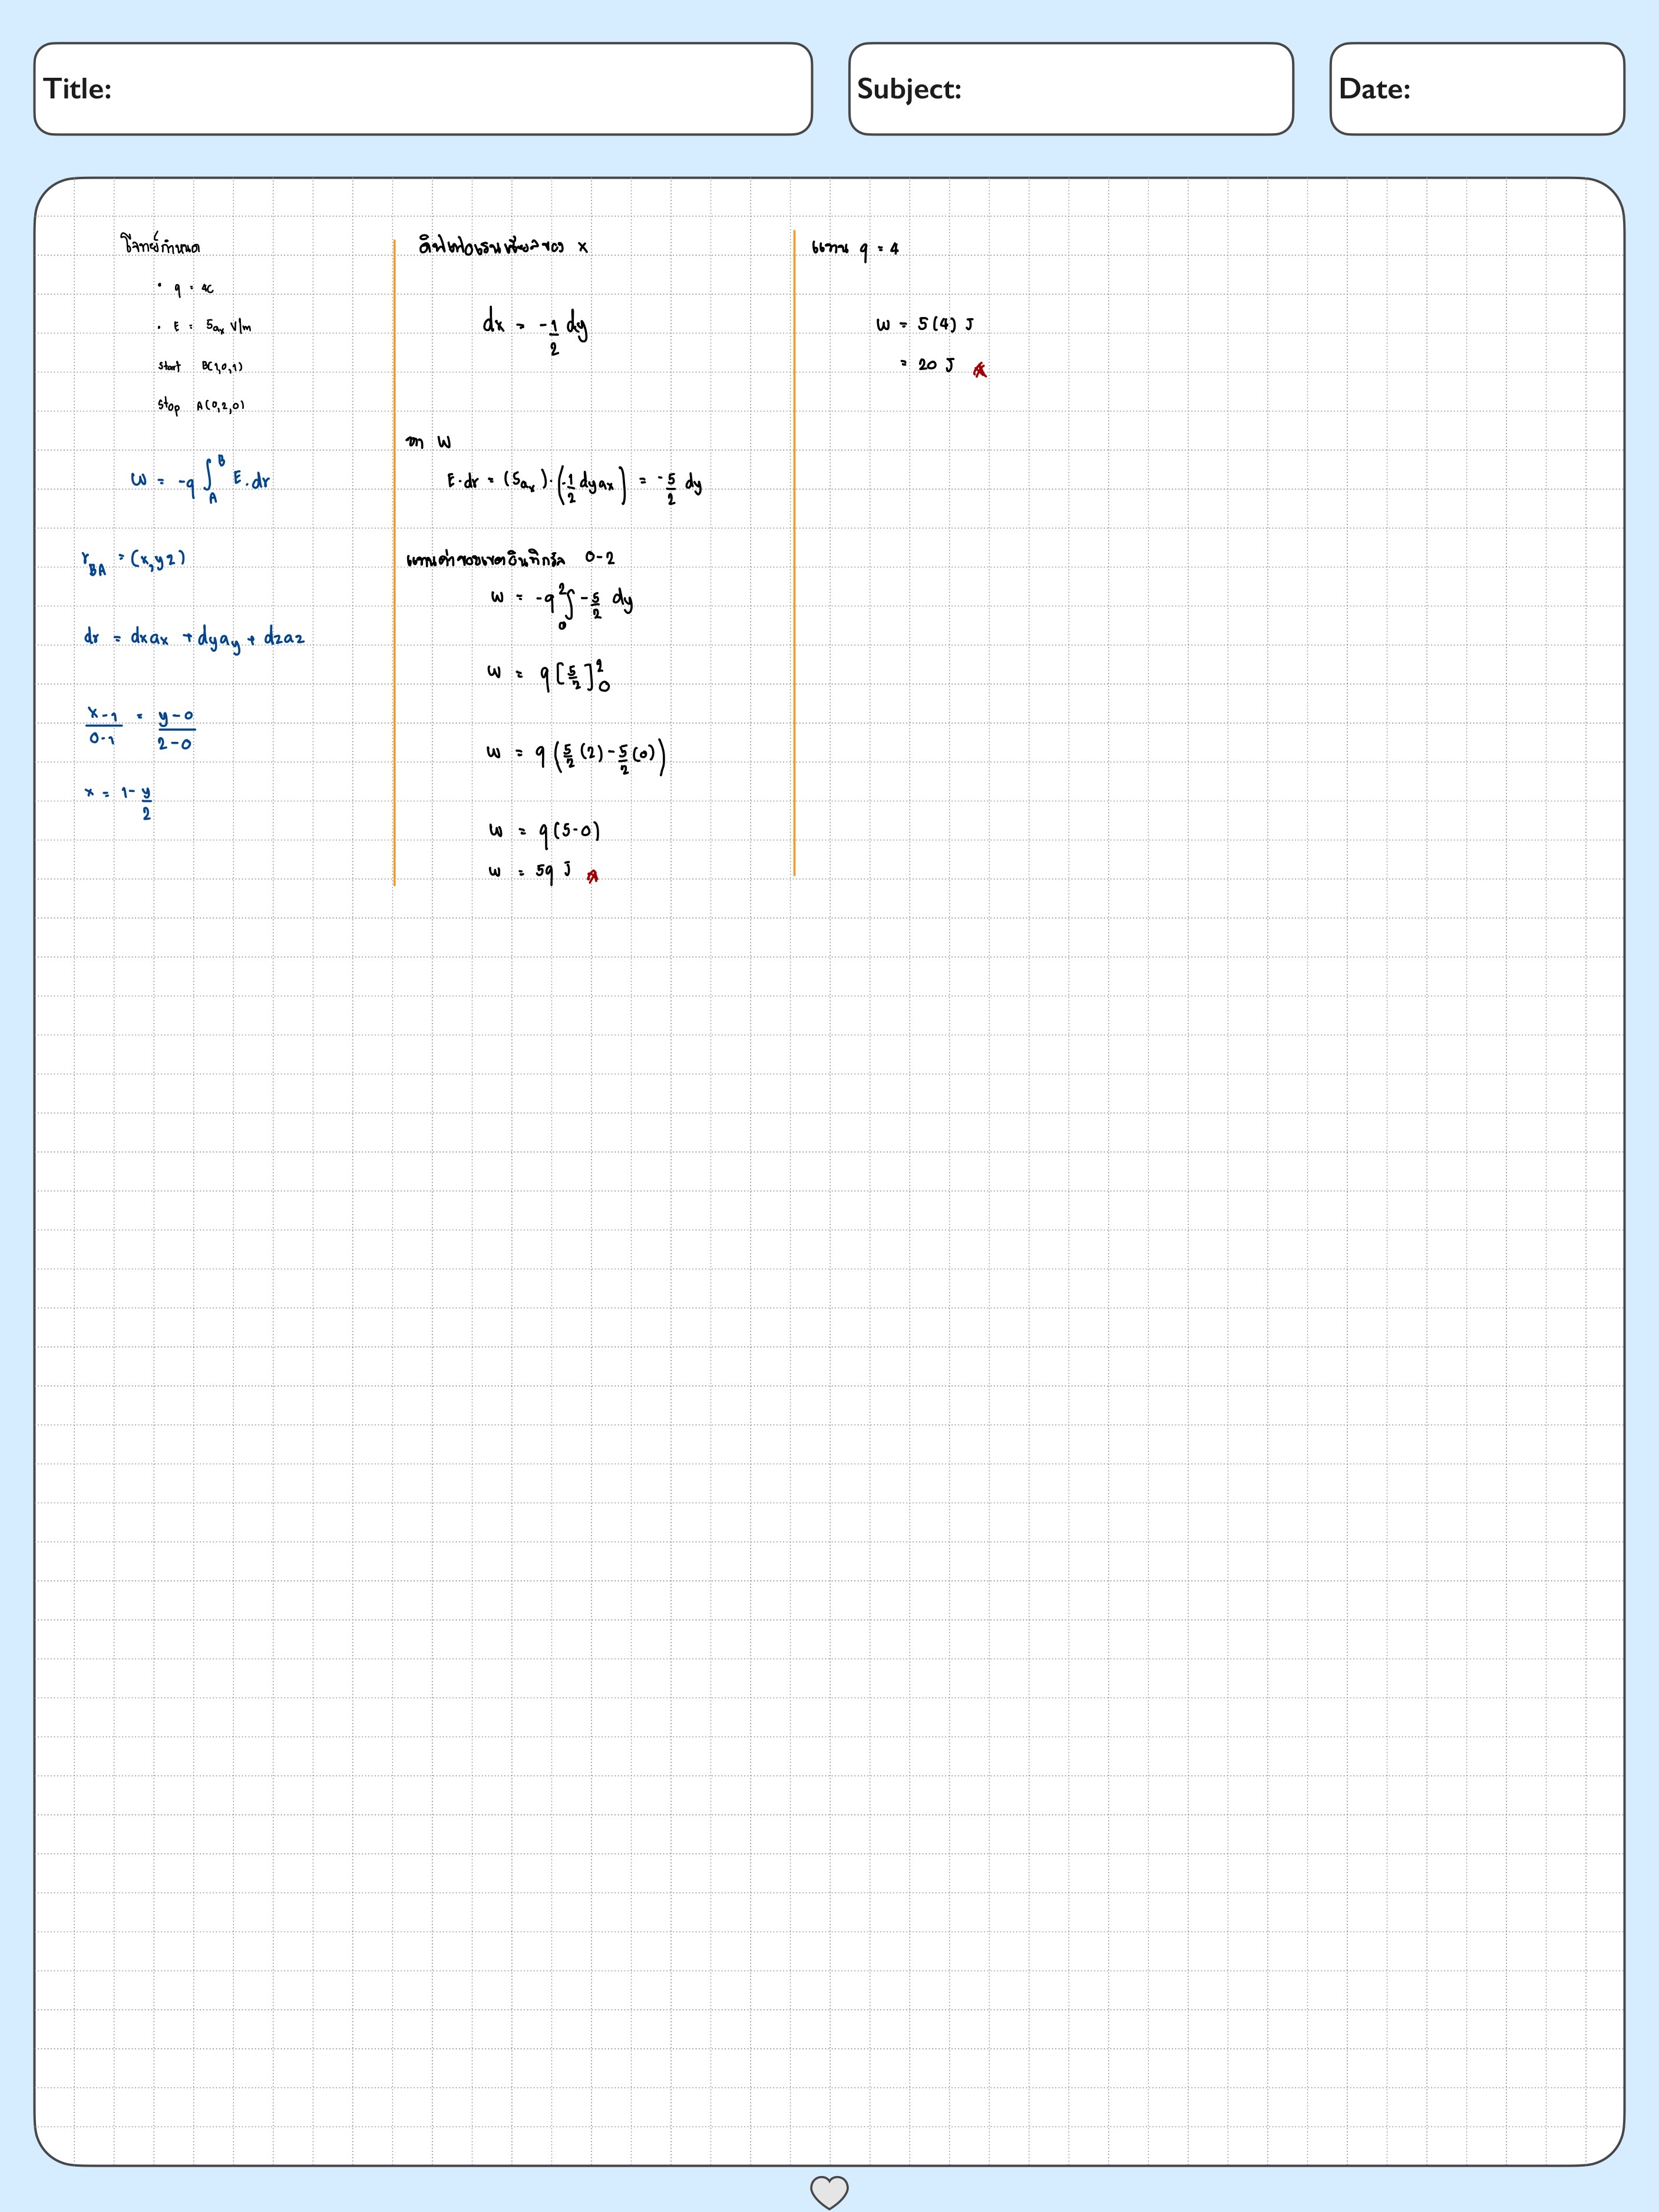 Title:
Subject:
Date:
โจทย์กำหนด
• q = 4C
• E = 5ax V/m
Start B(1,0,1)
Stop A(0,2,0)
W = -q ∫_A^B E.dr
r_BA = (x,y z)
dr = dxax + dyay + dzaz
x-1/0-1 = y-0/2-0
x = 1- y/2
ดิฟเฟอเรนเชียลของ x
dx = -1/2 dy
หา W
E.dr = (5ax).(-1/2 dyax) = -5/2 dy
แทนค่าขอบเขตอินทิกรัล 0-2
W = -q ∫_0^2 -5/2 dy
W = q [5/2]_0^2
W = q (5/2 (2) - 5/2 (0))
W = q (5-0)
W = 5q J
แทน q = 4
W = 5(4) J
= 20 J